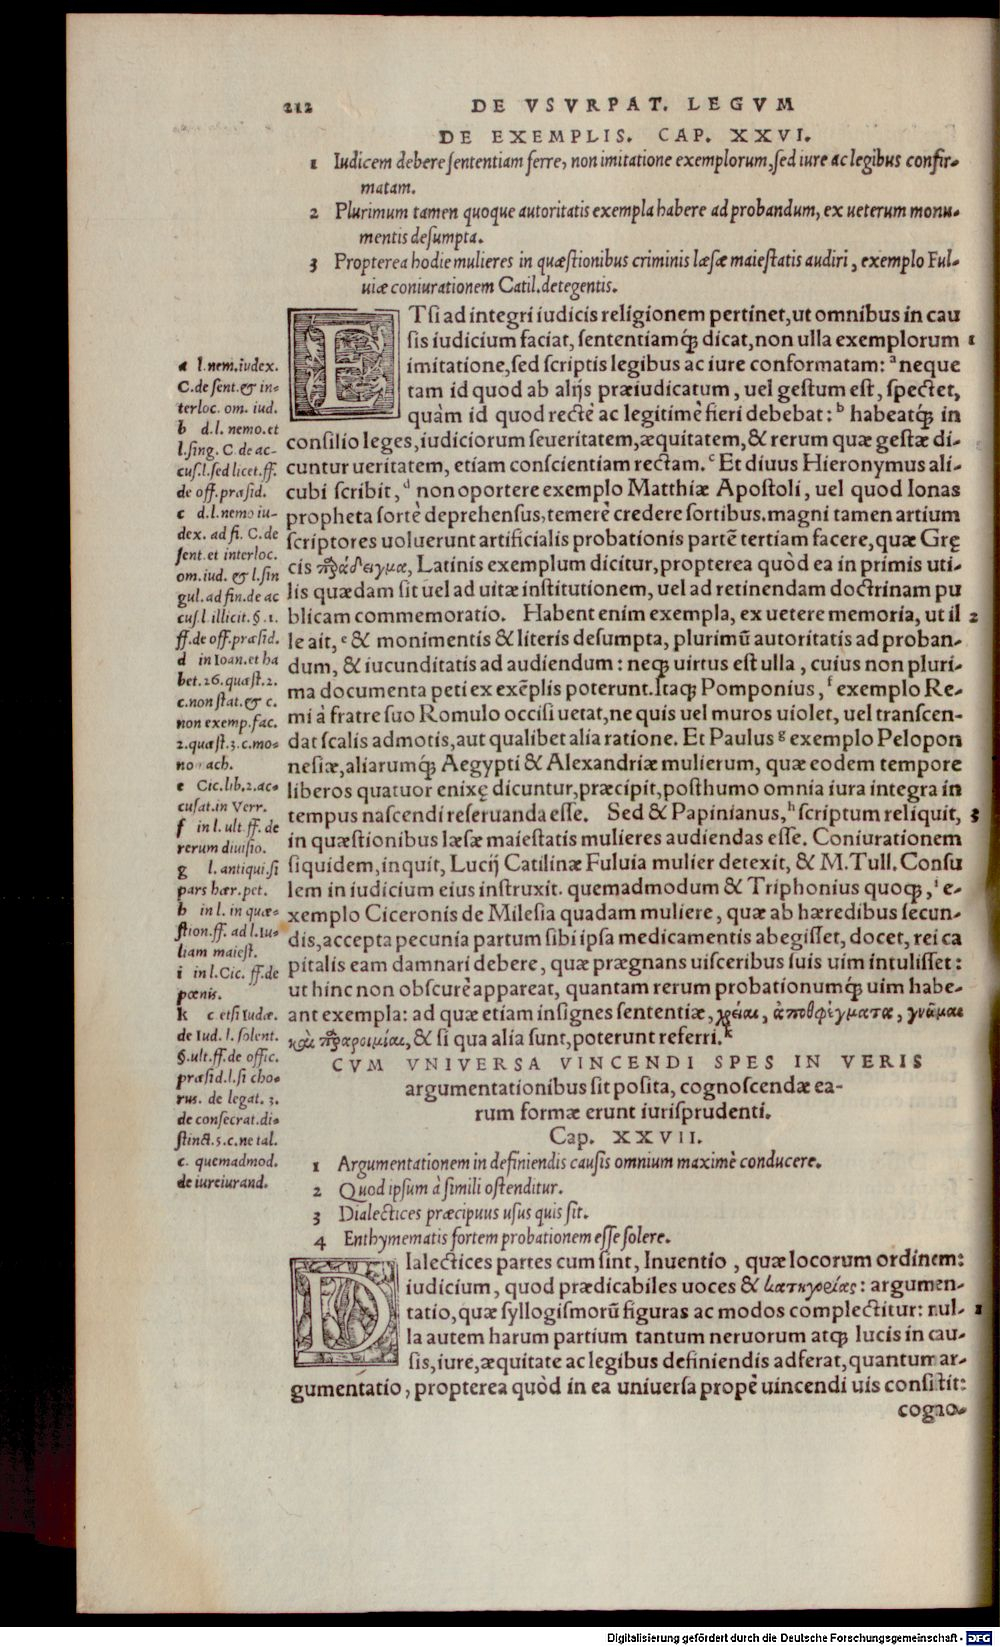 212 DE VSVRPAT. LEGVM
DE EXEMPLIS. CAP. XXVI.
1 Iudicem debere sententiam ferre, non imitatione exemplorum, sed iure ac legibus confir-
matam.
2 Plurimum tamen quoque autoritatis exempla habere ad probandum, ex ueterum monu-
mentis desumpta.
3 Propterea hodie mulieres in quæstionibus criminis læsæ maiestatis audiri, exemplo Ful-
uiæ coniurationem Catil. detegentis.
ETsi ad integri iudicis religionem pertinet, ut omnibus in cau
sis iudicium faciat, sententiamq́; dicat, non ulla exemplorum 1
imitatione, sed scriptis legibus ac iure conformatam: a neque
tam id quod ab alijs præiudicatum, uel gestum est, spectet,
quàm id quod rectè ac legitimè fieri debebat: b habeatq́; in
consilio leges, iudiciorum seueritatem, æquitatem, & rerum quæ gestæ di-
cuntur ueritatem, etiam conscientiam rectam. c Et diuus Hieronymus ali-
cubi scribit, d non oportere exemplo Matthiæ Apostoli, uel quod Ionas
propheta sortè deprehensus, temerè credere sortibus. magni tamen artium
scriptores uoluerunt artificialis probationis partē tertiam facere, quæ Grę
cis παράδειγμα, Latinis exemplum dicitur, propterea quòd ea in primis uti-
lis quædam sit uel ad uitæ institutionem, uel ad retinendam doctrinam pu
blicam commemoratio. Habent enim exempla, ex uetere memoria, ut il 2
le ait, e & monimentis & literis desumpta, plurimū autoritatis ad proban-
dum, & iucunditatis ad audiendum: neq; uirtus est ulla, cuius non pluri-
ma documenta peti ex exēplis poterunt. Itaq; Pomponius, f exemplo Re-
mi à fratre suo Romulo occisi uetat, ne quis uel muros uiolet, uel transcen-
dat scalis admotis, aut qualibet alia ratione. Et Paulus g exemplo Pelopon
nesiæ, aliarumq́; Aegypti & Alexandriæ mulierum, quæ eodem tempore
liberos quatuor enixę dicuntur, præcipit, posthumo omnia iura integra in
tempus nascendi reseruanda esse. Sed & Papinianus, h scriptum reliquit, 3
in quæstionibus læsæ maiestatis mulieres audiendas esse. Coniurationem
siquidem, inquit, Lucij Catilinæ Fuluia mulier detexit, & M. Tull. Consu
lem in iudicium eius instruxit. quemadmodum & Triphonius quoq;, i e-
xemplo Ciceronis de Milesia quadam muliere, quæ ab hæredibus secun-
dis, accepta pecunia partum sibi ipsa medicamentis abegisset, docet, rei ca
pitalis eam damnari debere, quæ prægnans uisceribus suis uim intulisset:
ut hinc non obscurè appareat, quantam rerum probationumq́; uim habe-
ant exempla: ad quæ etiam insignes sententiæ, χρεῖαι, ἀποφθέγματα, γνῶμαι
καὶ παροιμίαι, & si qua alia sunt, poterunt referri. k
a l. nem. iudex.
C. de sent. & in-
terloc. om. iud.
b d. l. nemo. et
l. sing. C. de ac-
cus. l. sed licet. ff.
de off. præsid.
c d. l. nemo iu-
dex. ad fi. C. de
sent. et interloc.
om. iud. & l. sin
gul. ad fin. de ac
cus. l. illicit. §. 1.
ff. de off. præsid.
d in Ioan. et ha
bet. 26. quæst. 2.
c. non stat. & c.
non exemp. fac.
2. quæst. 3. c. mo-
no ach.
e Cic. lib. 2. ac-
cusat. in Verr.
f in l. ult. ff. de
rerum diuisio.
g l. antiqui. si
pars hær. pet.
h in l. in quæ-
stion. ff. ad l. Iu-
liam maiest.
i in l. Cic. ff. de
pœnis.
k c etsi Iudæ.
de Iud. l. solent.
§. ult. ff. de offic.
præsid. l. si cho-
rus. de legat. 3.
de consecrat. di-
stinct. 5. c. ne tal.
c. quemadmod.
de iureiurand.
CVM VNIVERSA VINCENDI SPES IN VERIS
argumentationibus sit posita, cognoscendæ ea-
rum formæ erunt iurisprudenti.
Cap. XXVII.
1 Argumentationem in definiendis causis omnium maximè conducere.
2 Quod ipsum à simili ostenditur.
3 Dialectices præcipuus usus quis sit.
4 Enthymematis fortem probationem esse solere.
DIalectices partes cum sint, Inuentio, quæ locorum ordinem:
iudicium, quod prædicabiles uoces & κατηγορίας: argumen-
tatio, quæ syllogismorū figuras ac modos complectitur: nul- 1
la autem harum partium tantum neruorum atq; lucis in cau-
sis, iure, æquitate ac legibus definiendis adferat, quantum ar-
gumentatio, propterea quòd in ea uniuersa propè uincendi uis consistit:
cogno-
Digitalisierung gefördert durch die Deutsche Forschungsgemeinschaft - DFG